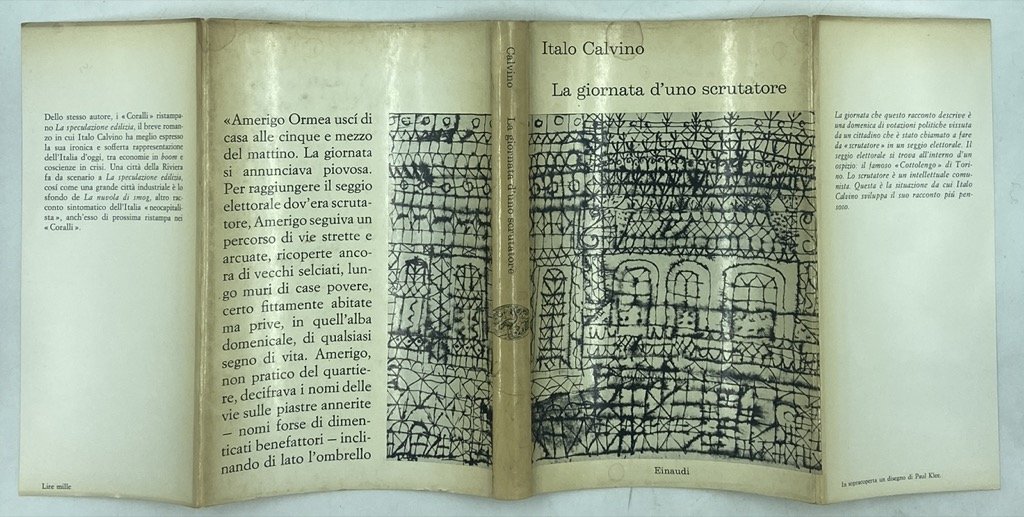 Dello stesso autore, i «Coralli» ristampa-
no La speculazione edilizia, il breve roman-
zo in cui Italo Calvino ha meglio espresso
la sua ironica e sofferta rappresentazione
dell'Italia d'oggi, tra economie in boom e
coscienze in crisi. Una città della Riviera
fa da scenario a La speculazione edilizia,
cosí come una grande città industriale è lo
sfondo de La nuvola di smog, altro rac-
conto sintomatico dell'Italia «neocapitali-
sta», anch'esso di prossima ristampa nei
«Coralli».
Lire mille
«Amerigo Ormea uscí di
casa alle cinque e mezzo
del mattino. La giornata
si annunciava piovosa.
Per raggiungere il seggio
elettorale dov'era scruta-
tore, Amerigo seguiva un
percorso di vie strette e
arcuate, ricoperte anco-
ra di vecchi selciati, lun-
go muri di case povere,
certo fittamente abitate
ma prive, in quell'alba
domenicale, di qualsiasi
segno di vita. Amerigo,
non pratico del quartie-
re, decifrava i nomi delle
vie sulle piastre annerite
– nomi forse di dimen-
ticati benefattori – incli-
nando di lato l'ombrello
Calvino
La giornata d'uno scrutatore
Italo Calvino
La giornata d'uno scrutatore
Einaudi
La giornata che questo racconto descrive è
una domenica di votazioni politiche vissuta
da un cittadino che è stato chiamato a fare
da «scrutatore» in un seggio elettorale. Il
seggio elettorale si trova all'interno d'un
ospizio: il famoso «Cottolengo» di Tori-
no. Lo scrutatore è un intellettuale comu-
nista. Questa è la situazione da cui Italo
Calvino sviluppa il suo racconto piú pen-
soso.
In sopracoperta un disegno di Paul Klee.